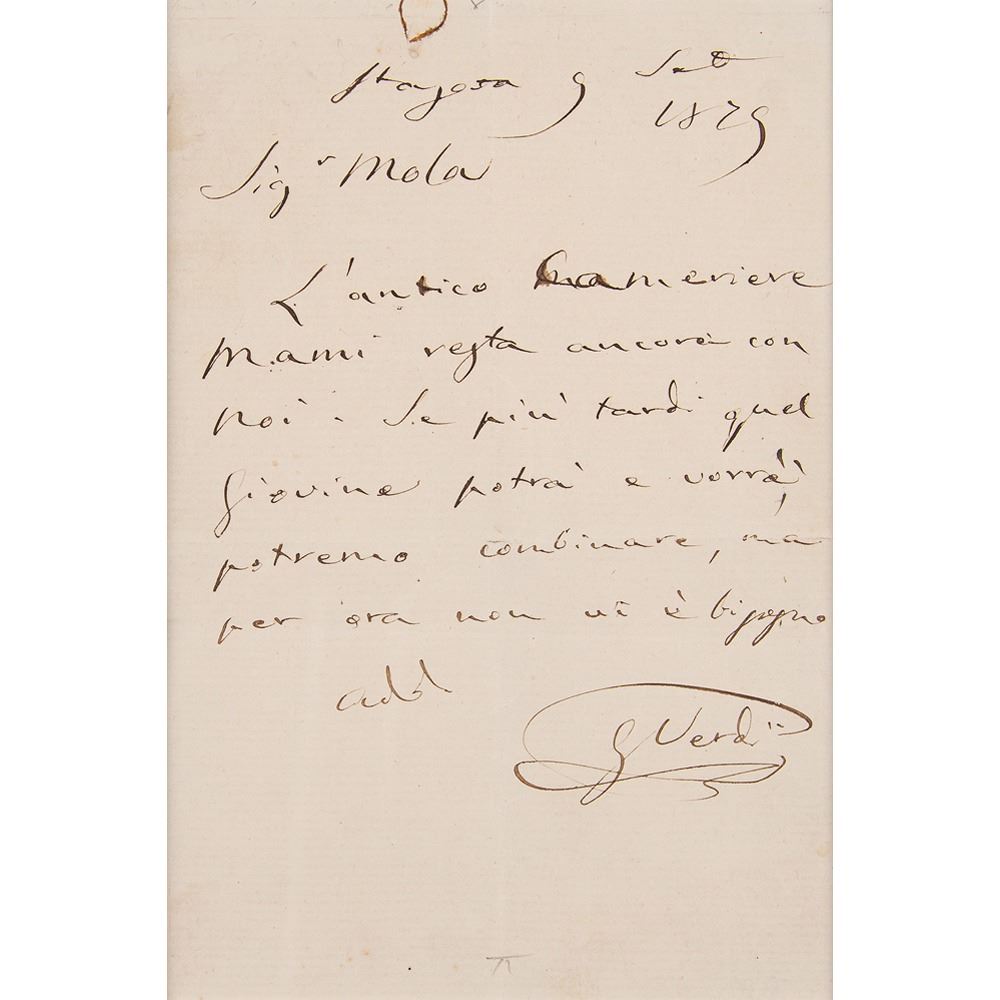 StAgata 9 Set
1879
Sigr Mola
L'antico Cameriere
Mami resta ancora con
noi. Se più tardi quel
giovine potrà e vorrà,
potremo combinare, ma
per ora non vi è bisogno
add.
G Verdi